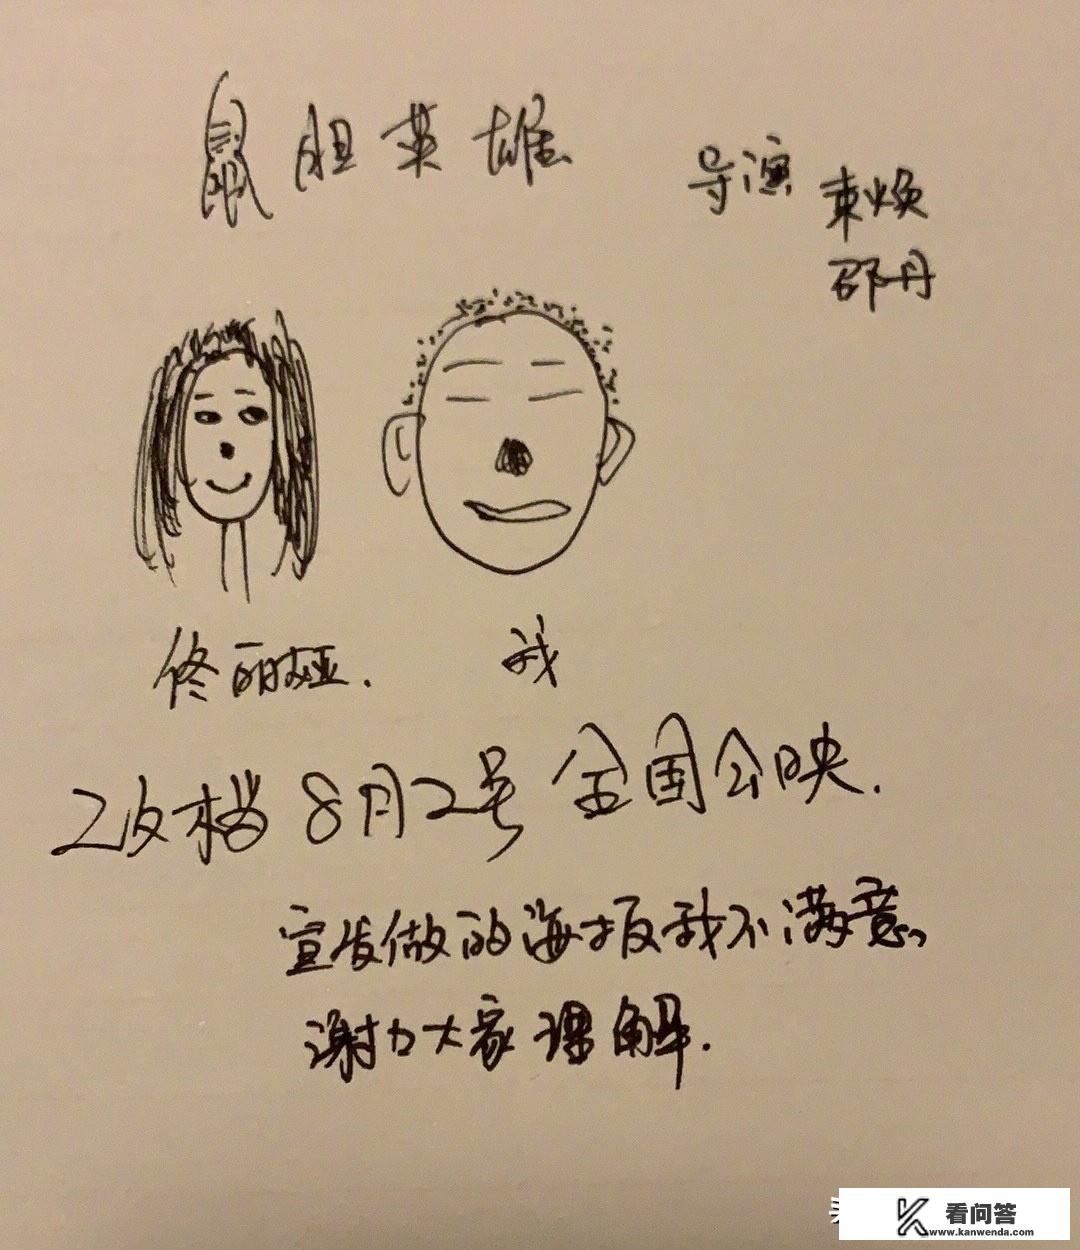 鼠胆英雄
导演 束焕
邵丹
佟丽娅. 我
改档 8月2号 全国公映.
宣发做的海报我不满意。
谢谢大家理解.
看问答
www.kanwenda.com